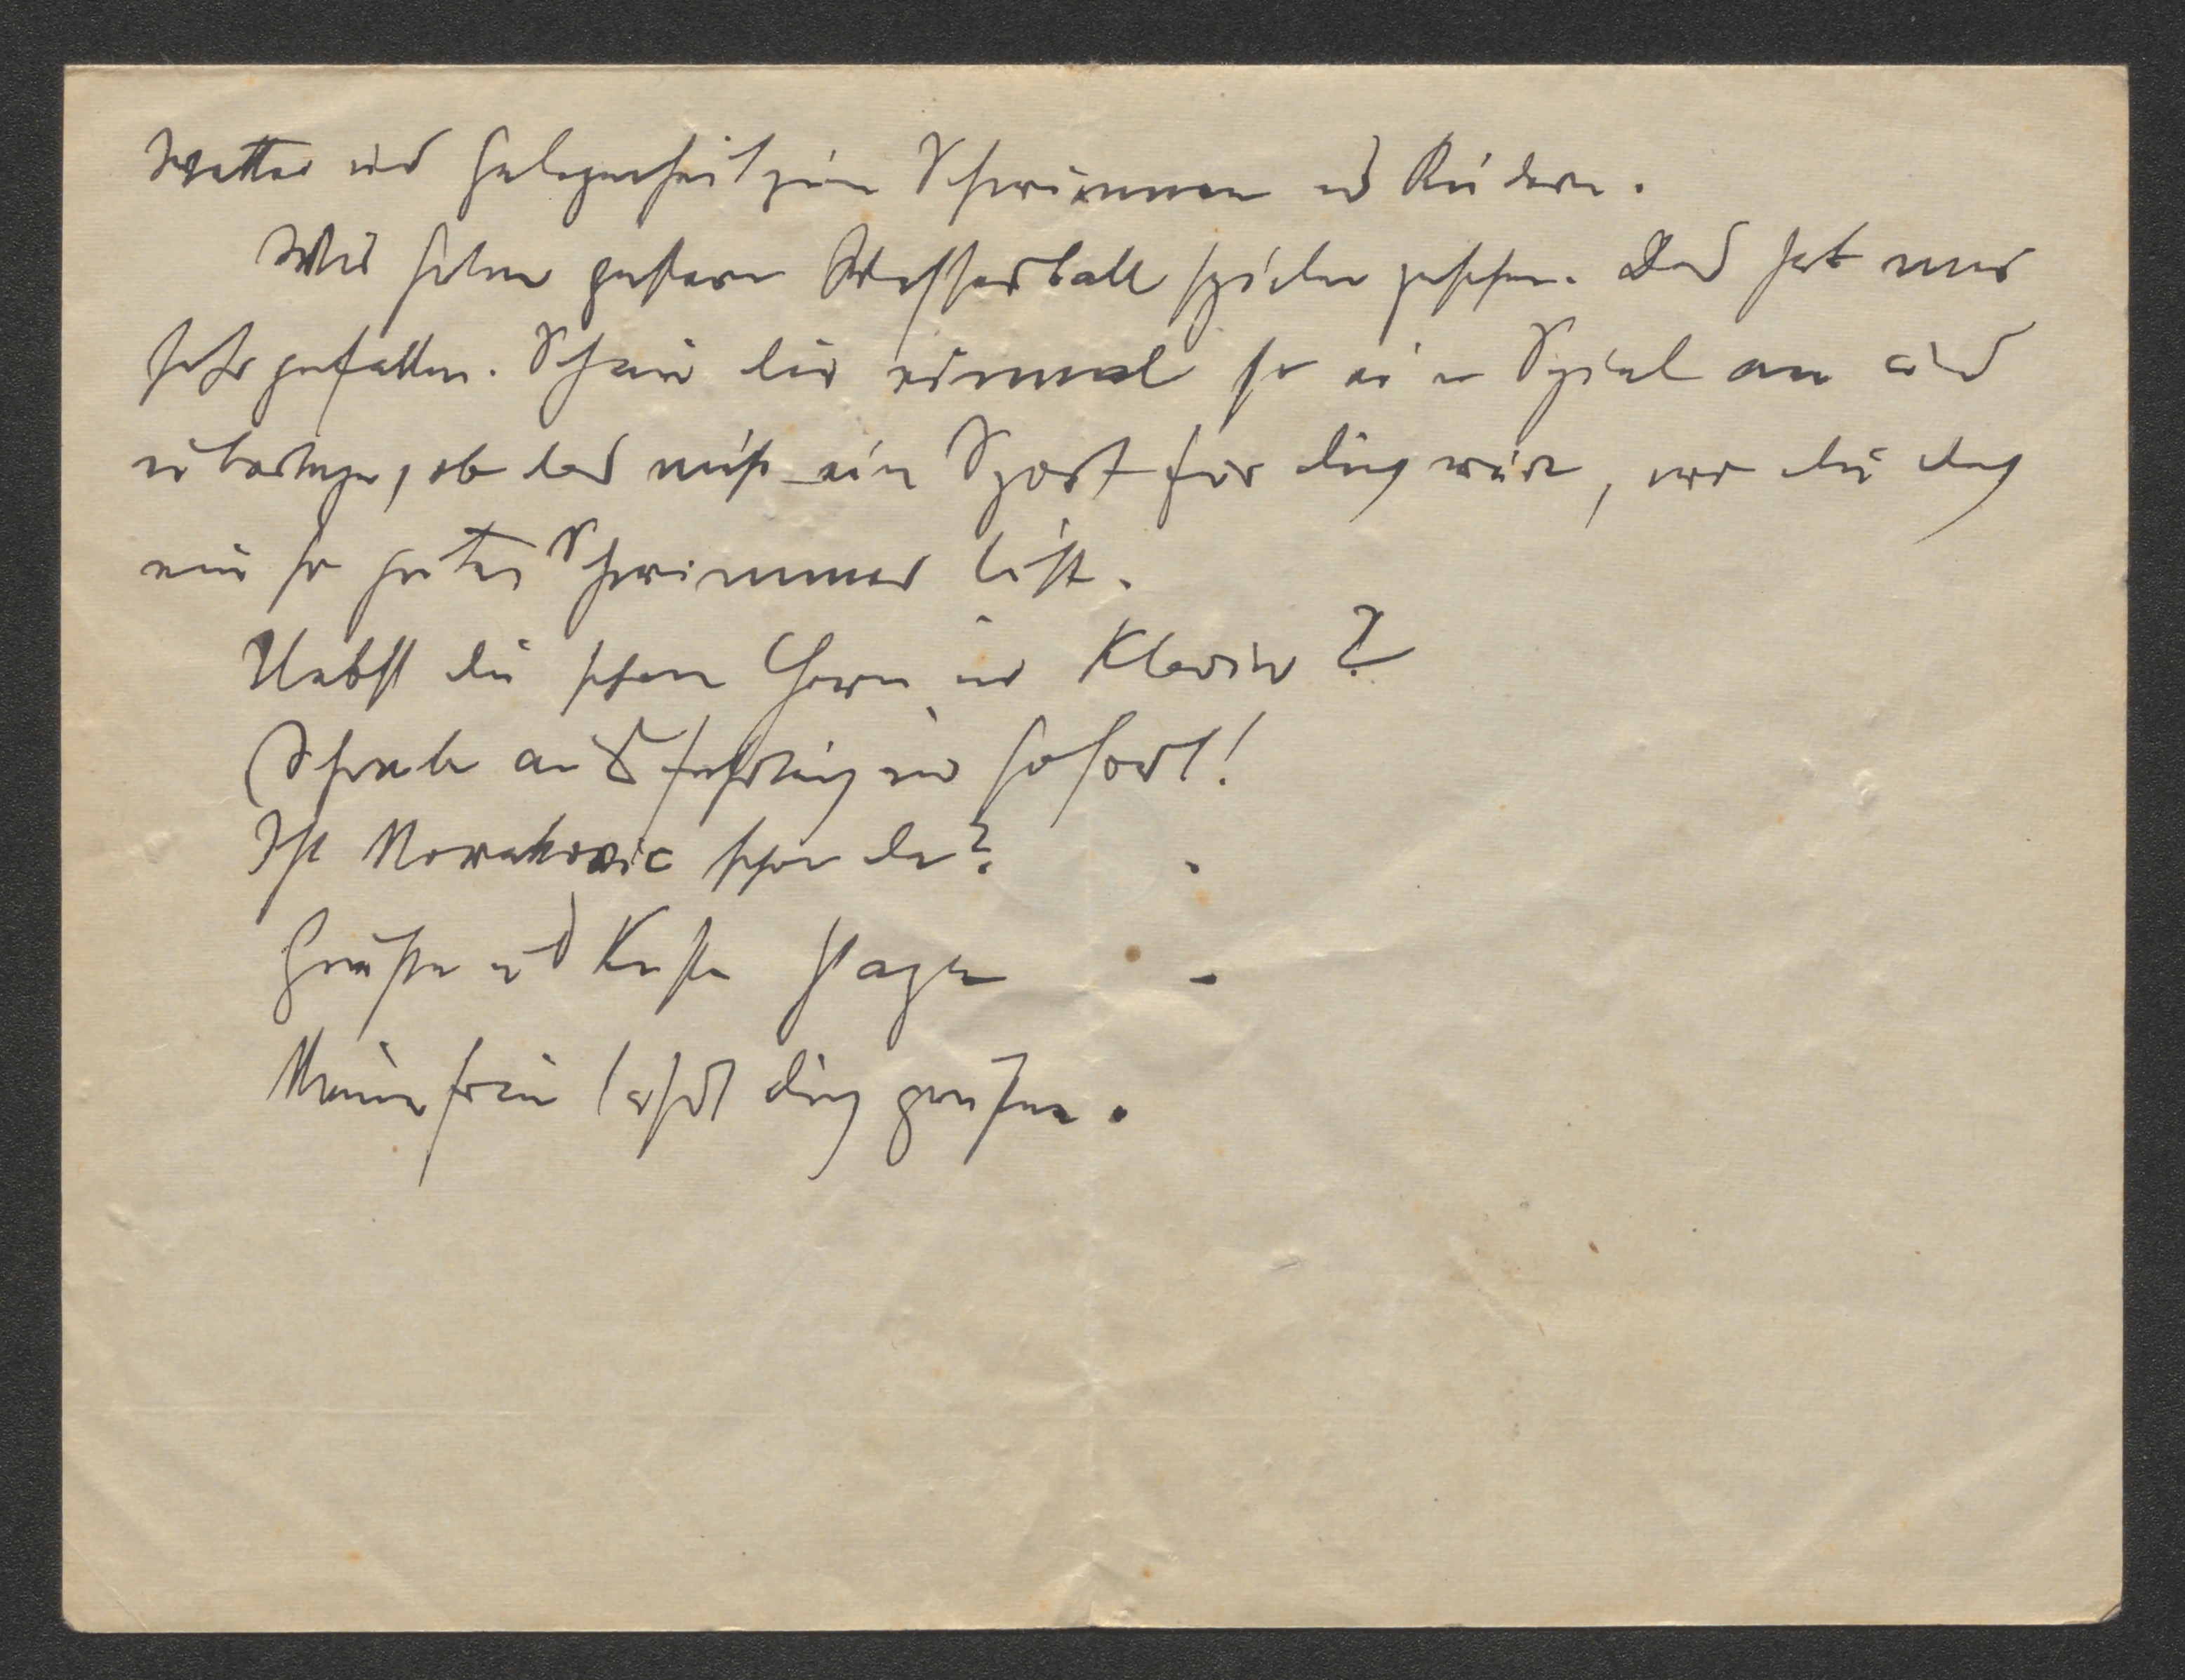 Wetter und Gelegenheit zum Schwimmen und Rudern.
Wir haben gestern Wasserball spielen gesehen. Das hat mir
sehr gefallen. Schau dir einmal so ein Spiel an und
überlege, ob das nicht ein Sport für dich wäre, wo du doch
ein so guter Schwimmer bist.
Uebst du schon Horn und Klavier?
Schreibe ausführlich und sofort!
Ist Novakovic schon da?
Grüße und Küsse
Meine Frau lässt dich grüßen.